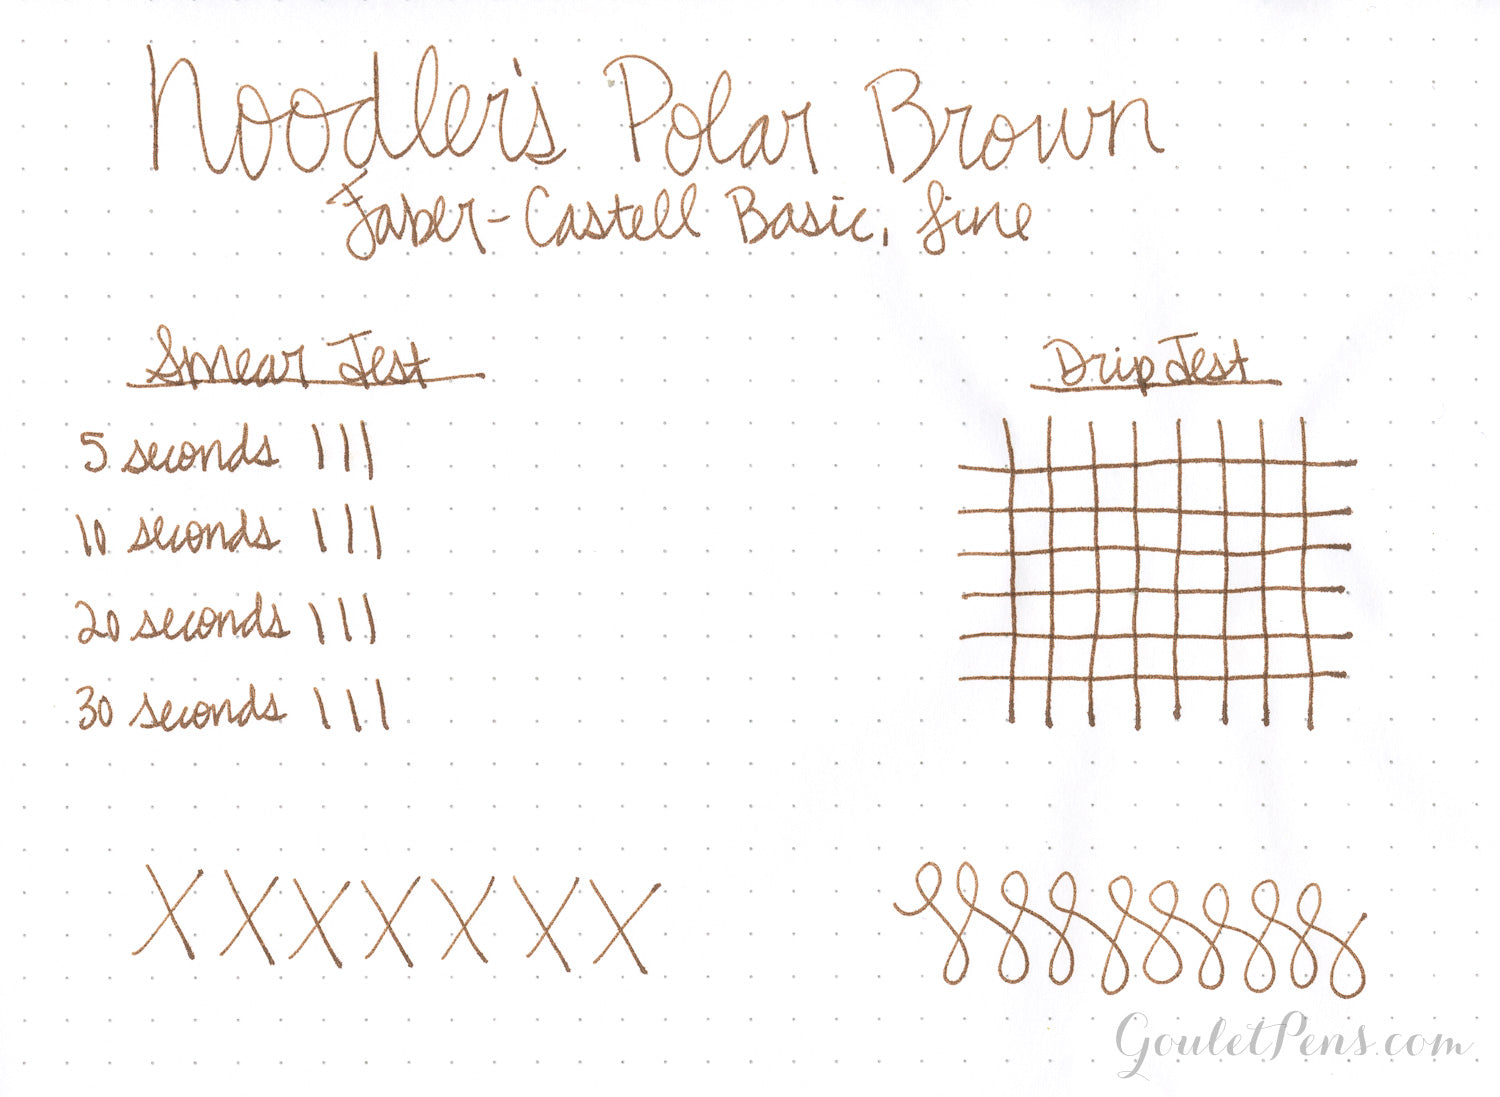 Noodler's Polar Brown
Faber-Castell Basic, fine
Smear Test
Drip Test
5 seconds |||
10 seconds |||
20 seconds |||
30 seconds |||
X X X X X X X
GouletPens.com